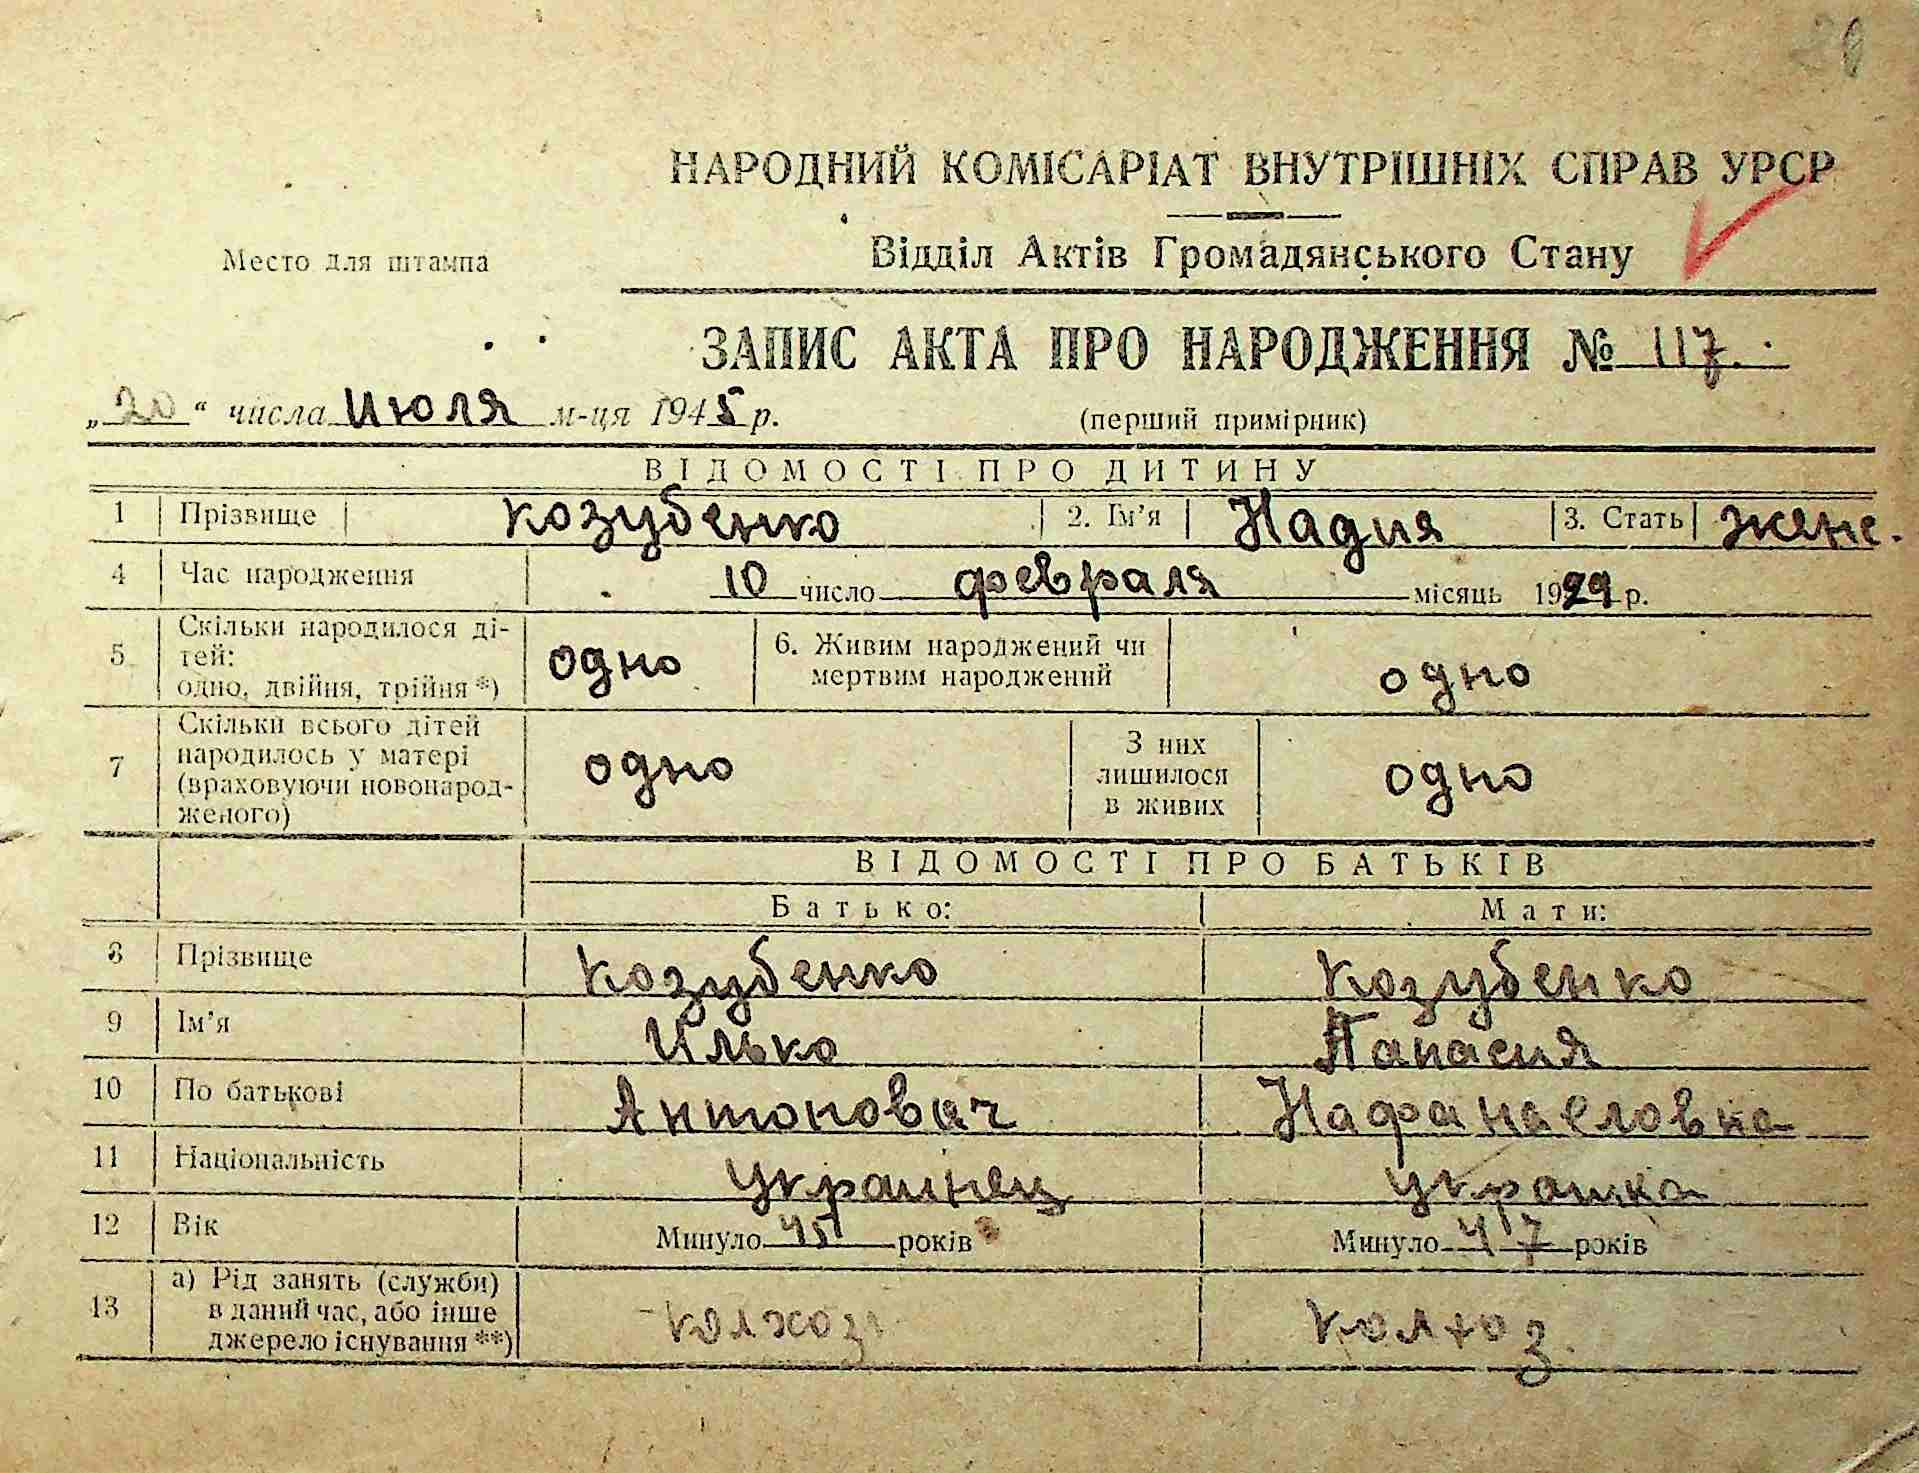 НАРОДНИЙ КОМІСАРІАТ ВНУТРІШНІХ СПРАВ УРСР
Место для штампа
Відділ Актів Громадянського Стану
ЗАПИС АКТА ПРО НАРОДЖЕННЯ № 117.
„20“ числа Июля м-ця 1945 р.
(перший примірник)
ВІДОМОСТІ ПРО ДИТИНУ
1 Прізвище Козубенко 2. Ім’я Надия 3. Стать женс.
4 Час народження 10 число февраля місяць 1929 р.
5 Скільки народилося ді-
тей:
одно, двійня, трійня *) одно 6. Живим народжений чи
мертвим народжений одно
7 Скільки всього дітей
народилось у матері
(враховуючи новонарод-
женого) одно З них
лишилося
в живих одно
ВІДОМОСТІ ПРО БАТЬКІВ
Батько: Мати:
8 Прізвище Козубенко Козубенко
9 Ім’я Илько Панасия
10 По батькові Антонович Нафанаеловна
11 Національність Украинец Украинка
12 Вік Минуло 45 років Минуло 47 років
13 а) Рід занять (служби)
в даний час, або інше
джерело існування **) колхоз колхоз.